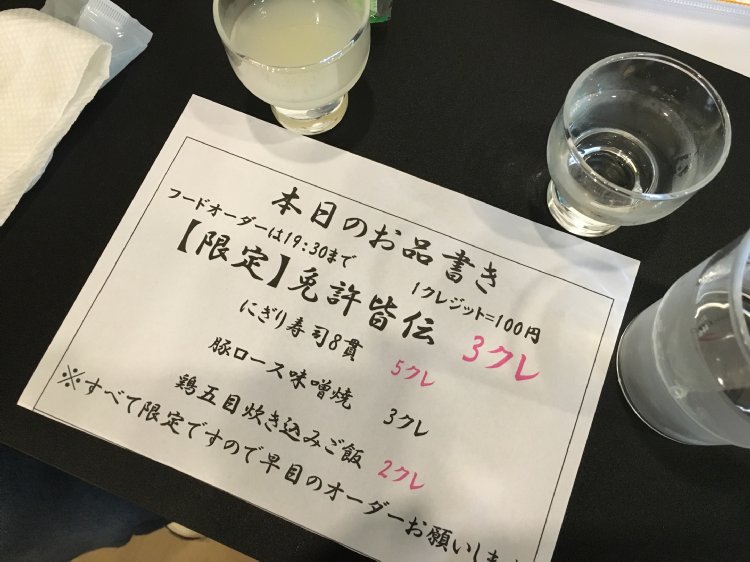 本日のお品書き
フードオーダーは19:30まで 1クレジット=100円
【限定】免許皆伝 3クレ
にぎり寿司8貫 5クレ
豚ロース味噌焼 3クレ
鶏五目炊き込みご飯 2クレ
※すべて限定ですので早目のオーダーお願いしま